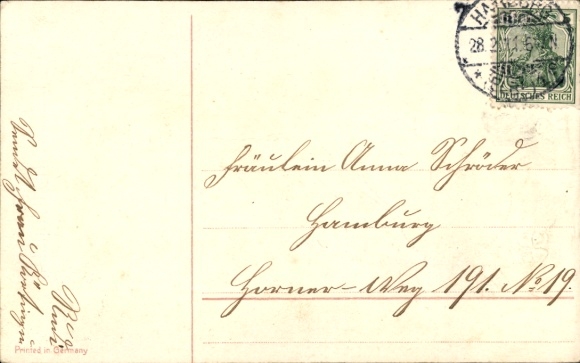 HAMBURG
28.2.11.6
5
DEUTSCHES REICH
Fräulein Anna Schröder
Hamburg
Horner-Weg 191. No 19.
Frau
Printed in Germany